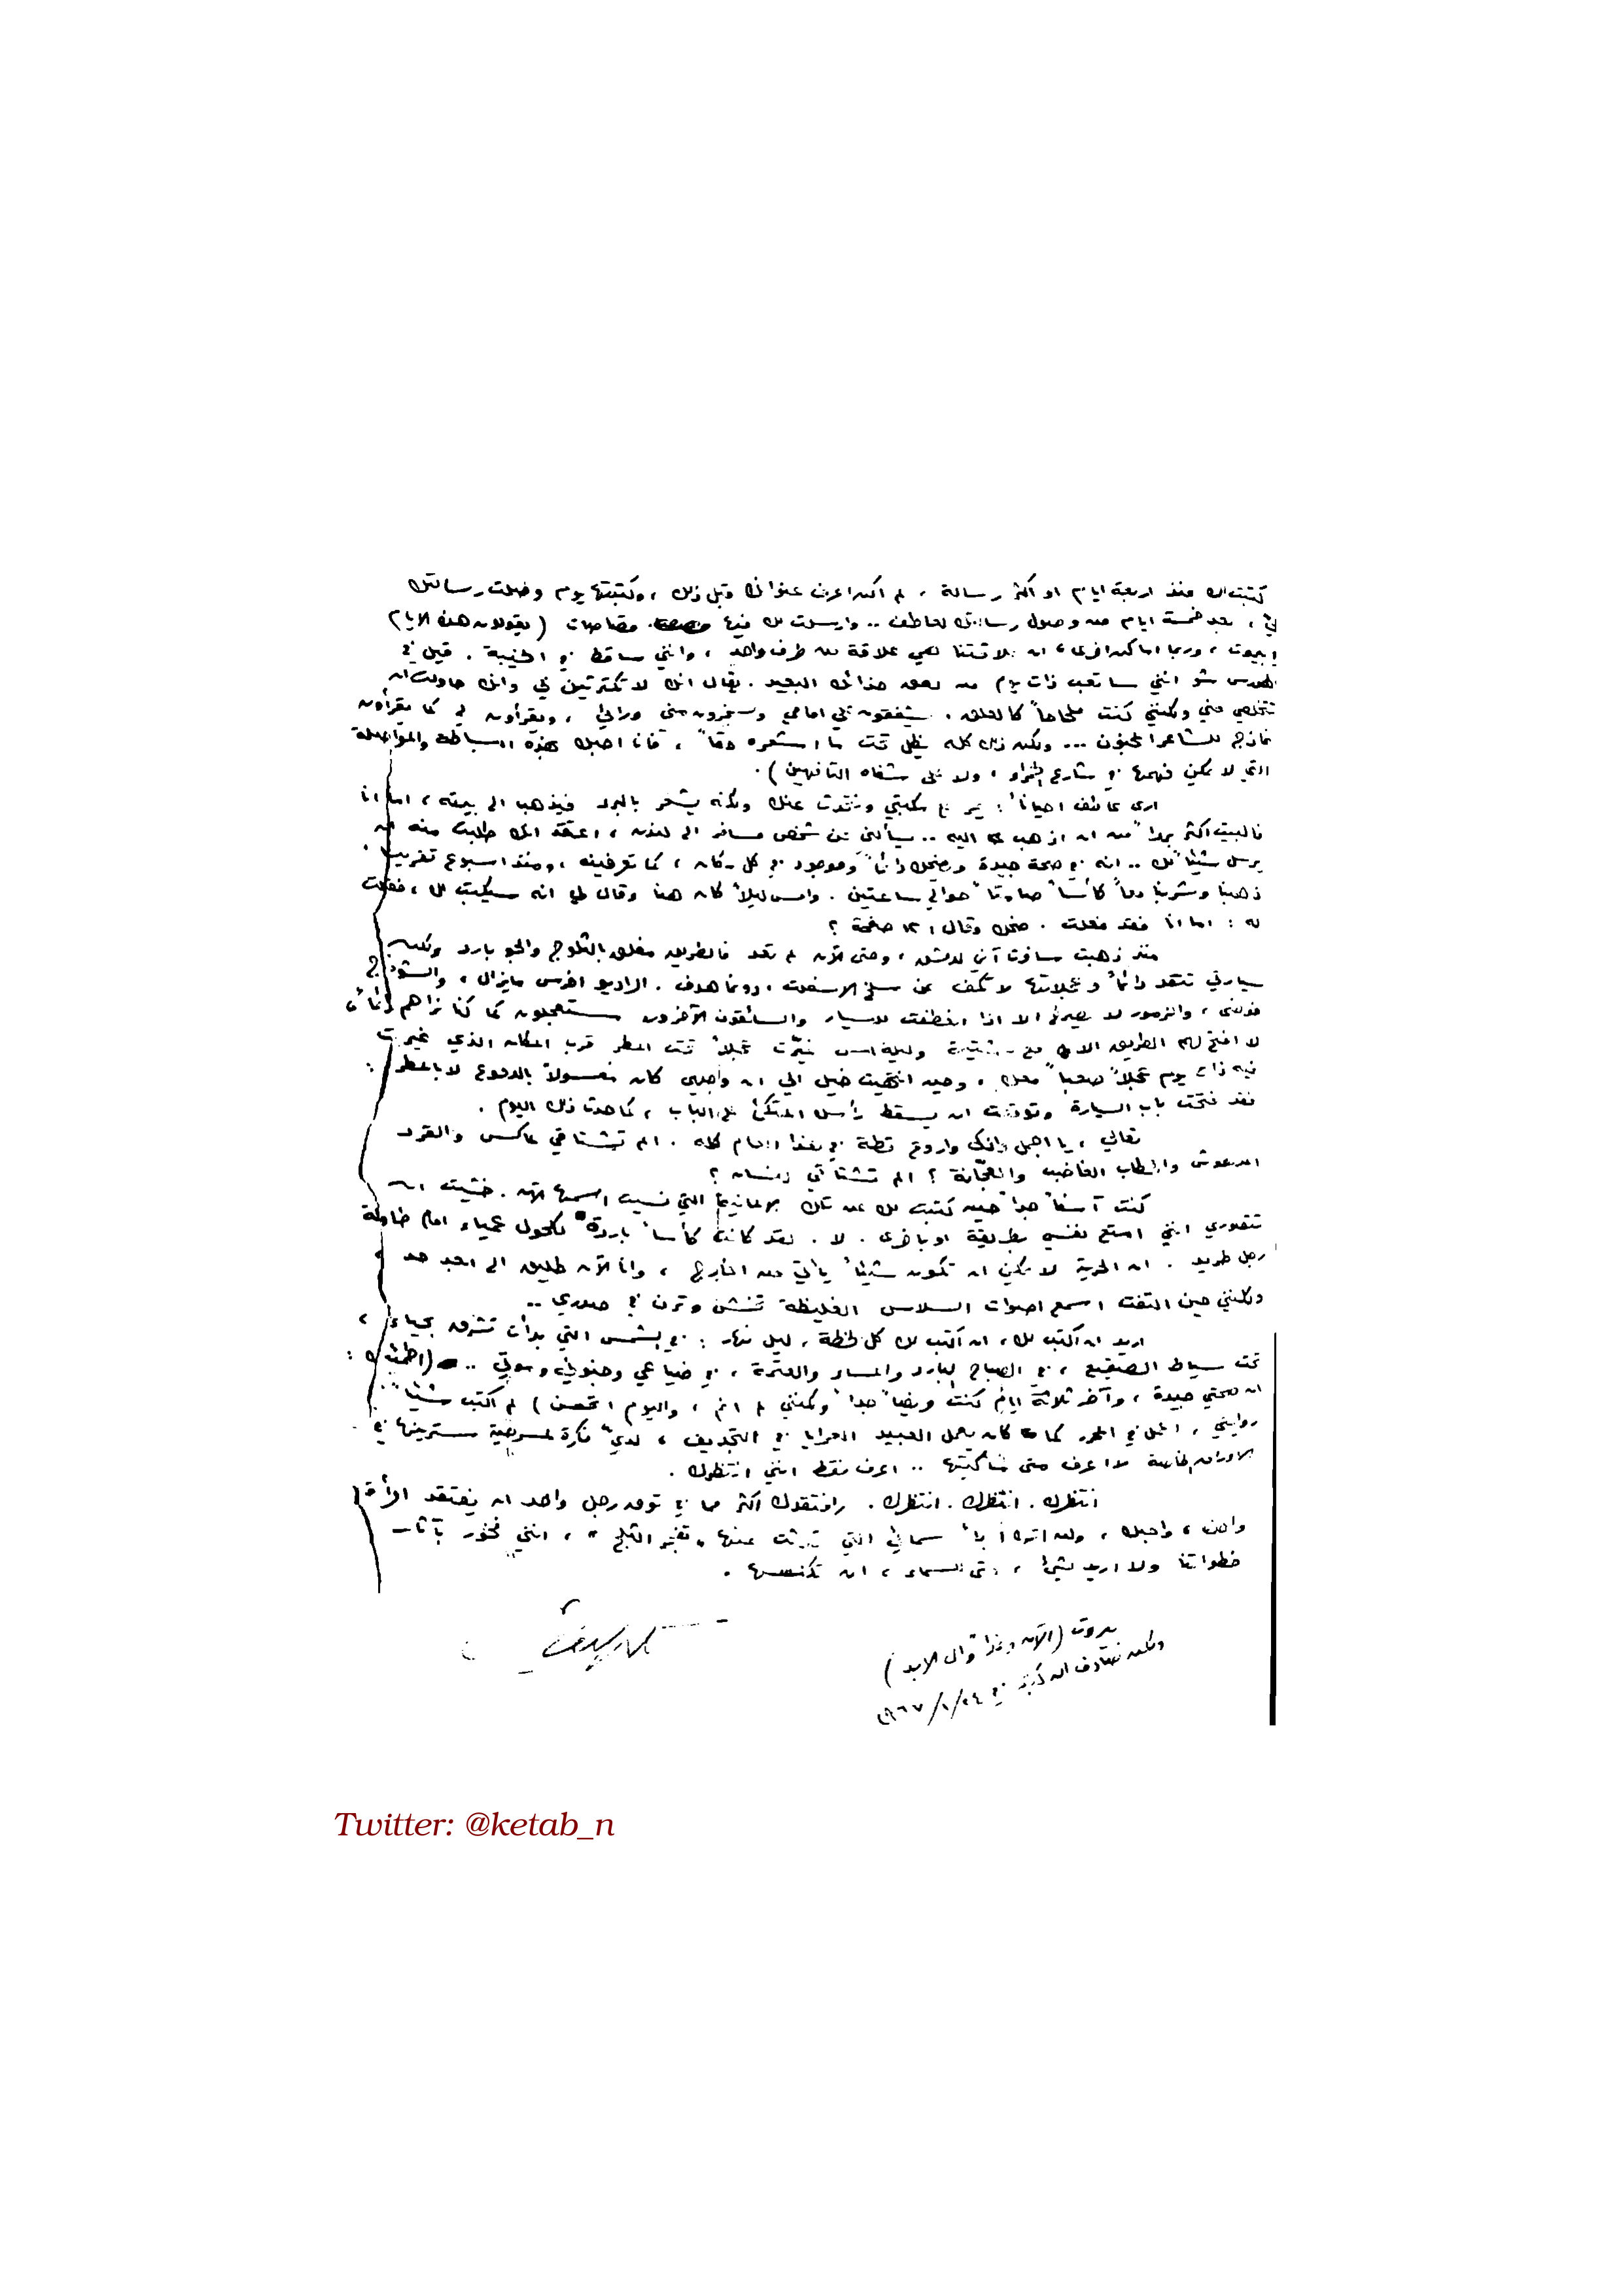 كتبت لك منذ اربعة ايام او اكثر رسالة ، لم اكن اعرف عنوانك قبل ذلك ، وكتبتها يوم وصلت رسالتك
لي ، بعد خمسة ايام من وصول رسالتك لعاطف .. وارسلت لك فيها قصاصات ( يقولون هذه الايام
بيروت ، وربما اماكن اخرى ، ان علاقتنا هي علاقة من طرف واحد ، وانني ساقط في الخيبة . قيل في
الهورس شو انني سأتعب ذات يوم من لعق حذائك البعيد . يقال انك لا تكترثين بي وانك حاولت ان
تتخلصي مني ولكنني كنت ملحاحاً كالعلق . يشفقون علي امامي ويسخرون مني ورائي ، ويقرأون لي كما يقرأون
نماذج للشاعر المجنون ... ولكن ذلك كله يظل تحت ما اشعره حقاً ، فأنا احبك بهذه البساطة والمواصلة
التي لا يمكن فهمها في شارع الحمراء ، ولا على شفاه التافهين ) .
ارى عاطف احياناً : يمر على مكتبي ونتحدث عنك ولكنه يشعر بالبرد فيذهب الى بيته ، اما انا
فالبيت اكثر برداً من ان اذهب اليه .. سيألني عن شخص مسافر الى لندن ، اعتقد انك طلبت منه ان
يرسل شيئاً لك .. انه في صحة جيدة ويضحك دائماً وموجود في كل مكان ، كما تعرفينه ، ومنذ اسبوع تقريباً
ذهبنا وشربنا معاً كأساً صامتاً حوالي ساعتين . وامس ليلاً كان هنا وقال لي انه سيكتب لك ، فقلت
له : اما انا فقد فعلت . ضحك وقال : صفحة ؟
منذ ذهبت سافرت آني لدمشق ، وحتى الآن لم تعد فالطريق مغلق بالثلوج والجو بارد ولكن
سيارتي تتقد دائماً وعجلاتها لا تكف عن سلخ الاسفلت ، دونما هدف . الراديو اخرس مايزال ، والشوفاج
فوضى ، والزمور لا يعمل الا اذا انعطفت لليسار والسائقون الآخرون مستعجلون كما كنا نراهم دائماً
لا افتح لهم الطريق الا مع شتيمة وليلة امس غيّرت عجلاً تحت المطر قرب المكان الذي غيرت
فيه ذات يوم عجلاً صعباً معك ، وحين انتهيت خيل الي ان وجهي كان مغسولاً بالدموع لا بالمطر :
فقد فتحت باب السيارة وتوقعت ان يسقط رأسك المتكئ على الباب ، كما حدث ذلك اليوم .
تعالي ، يا اجمل واذكى واروع قطة في هذا العالم كله . الم تشتاقي لماكس والقرد
المدعوش والمطاب الغاضب والعجّانة ؟ الم تشتاقي لغسان ؟
كنت آسفاً جداً حين كتبت لك عن تلك الالمانية التي نسيت اسمها الآن . خشيت ان
تتصوري انني امتع نفسي بطريقة او بأخرى . لا . لقد كانت كأساً باردة لكحول عمياء امام طاولة
رجل طريد . ان الحرية لا يمكن ان تكون شيئاً يأتي من الخارج ، وانا الآن طليق الى ابعد حد
ولكنني حين التفت اسمع اصوات السلاسل الغليظة تخشن وترن في صدري ..
اريد ان اكتب لك ، ان اكتب لك كل لحظة ، ليل نهار : في الشمس التي بدأت تشرق بحياء ،
تحت سياط الصقيع ، في الصباح البارد والمساء والعتمة ، في ضياعي وجنوني وموتي .. ( اطمئنك :
ان صحتي جيدة ، وآخر ثلاثة ايام كنت مريضاً جداً ولكنني لم انم ، واليوم اتحسن ) لم اكتب شيئاً
روايتي ، اعمل في المحرر كما كان يعمل العبيد العرايا في التجديف ، لديّ فكرة لمسرحية سترينها في
الاوراق الخاصة لا اعرف متى سأكتبها .. اعرف فقط انني انتظرك .
انتظرك . انتظرك . انتظرك . وافتقدك اكثر مما في توق رجل واحد ان يفتقد امرأة
واحدة ، واحبك ، ولن اترك ابداً سمائي التي تحدثت عنها " تغبر الثلج " ، انني فخور بآثار
خطواتنا ولا اريد لشيء ، حتى السماء ، ان تكنسها .
بيروت ( الآن وغداً والى الابد )
ولكن تصادف انه كتب في ٢٤ / ١ / ١٩٦٧
Twitter: @ketab_n